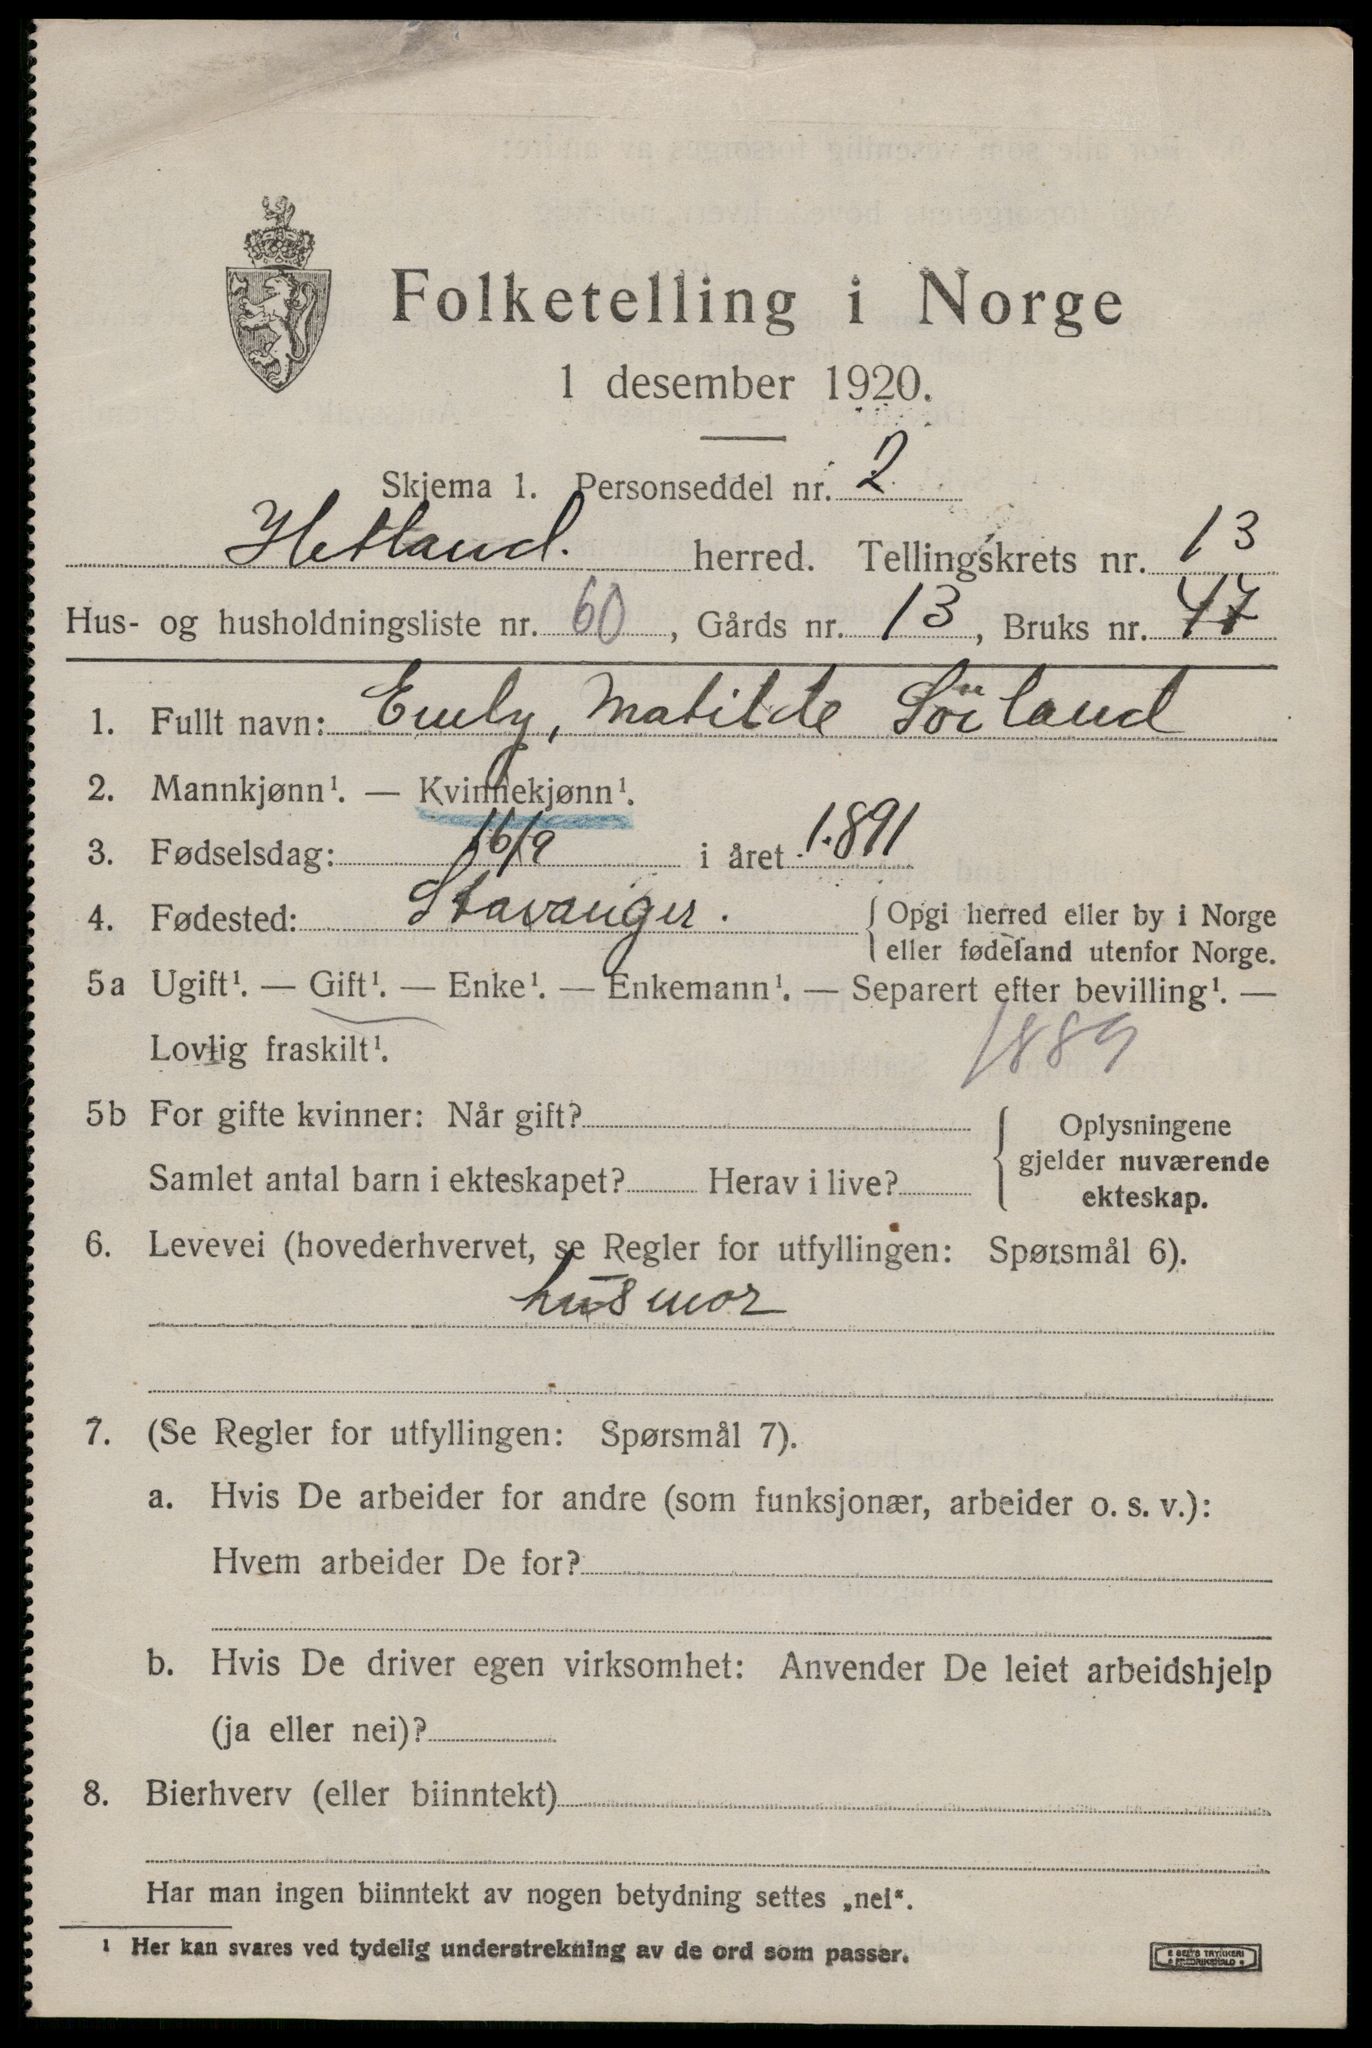 Folketelling i Norge
1 desember 1920.
Skjema 1. Personseddel nr. 2
Hetland. herred. Tellingskrets nr. 13
Hus- og husholdningsliste nr. 60, Gårds nr. 13, Bruks nr. 47
1. Fullt navn: Emly, Matilde Söiland
2. Mannkjønn¹. — Kvinnekjønn¹.
3. Fødselsdag: 16/9 i året 1891
4. Fødested: Stavanger. { Opgi herred eller by i Norge
eller fødeland utenfor Norge.
5a Ugift¹. — Gift¹. — Enke¹. — Enkemann¹. — Separert efter bevilling¹. —
Lovlig fraskilt¹. 1889
5b For gifte kvinner: Når gift? { Oplysningene
gjelder nuværende
Samlet antal barn i ekteskapet? Herav i live? ekteskap.
6. Levevei (hovederhvervet, se Regler for utfyllingen: Spørsmål 6).
husmor
7. (Se Regler for utfyllingen: Spørsmål 7).
a. Hvis De arbeider for andre (som funksjonær, arbeider o. s. v.):
Hvem arbeider De for?
b. Hvis De driver egen virksomhet: Anvender De leiet arbeidshjelp
(ja eller nei)?
8. Bierhverv (eller biinntekt)
Har man ingen biinntekt av nogen betydning settes „nei“.
¹ Her kan svares ved tydelig understrekning av de ord som passer.
E SEM'S TRYKKERI
FREDRIKSHALD